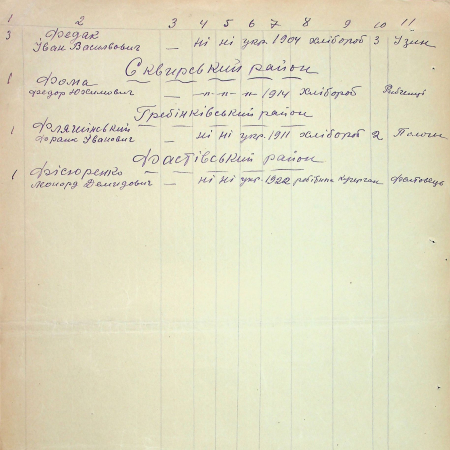 1 2 3 4 5 6 7 8 9 10 11
3 Федак
Іван Васильович — ні ні укр. 1904 хлібороб 3 Узин
Сквирський район
1 Фома
Федор Юхимович — -п- -п- -п- 1914 хлібороб
Гребінківський район
1 Флячинський
Франк Уванович — ні ні укр. 1911 хлібороб 2
Фастівський район
1 Фісюренко
Леонорд Демидович — ні ні укр. 1922 Фастовець